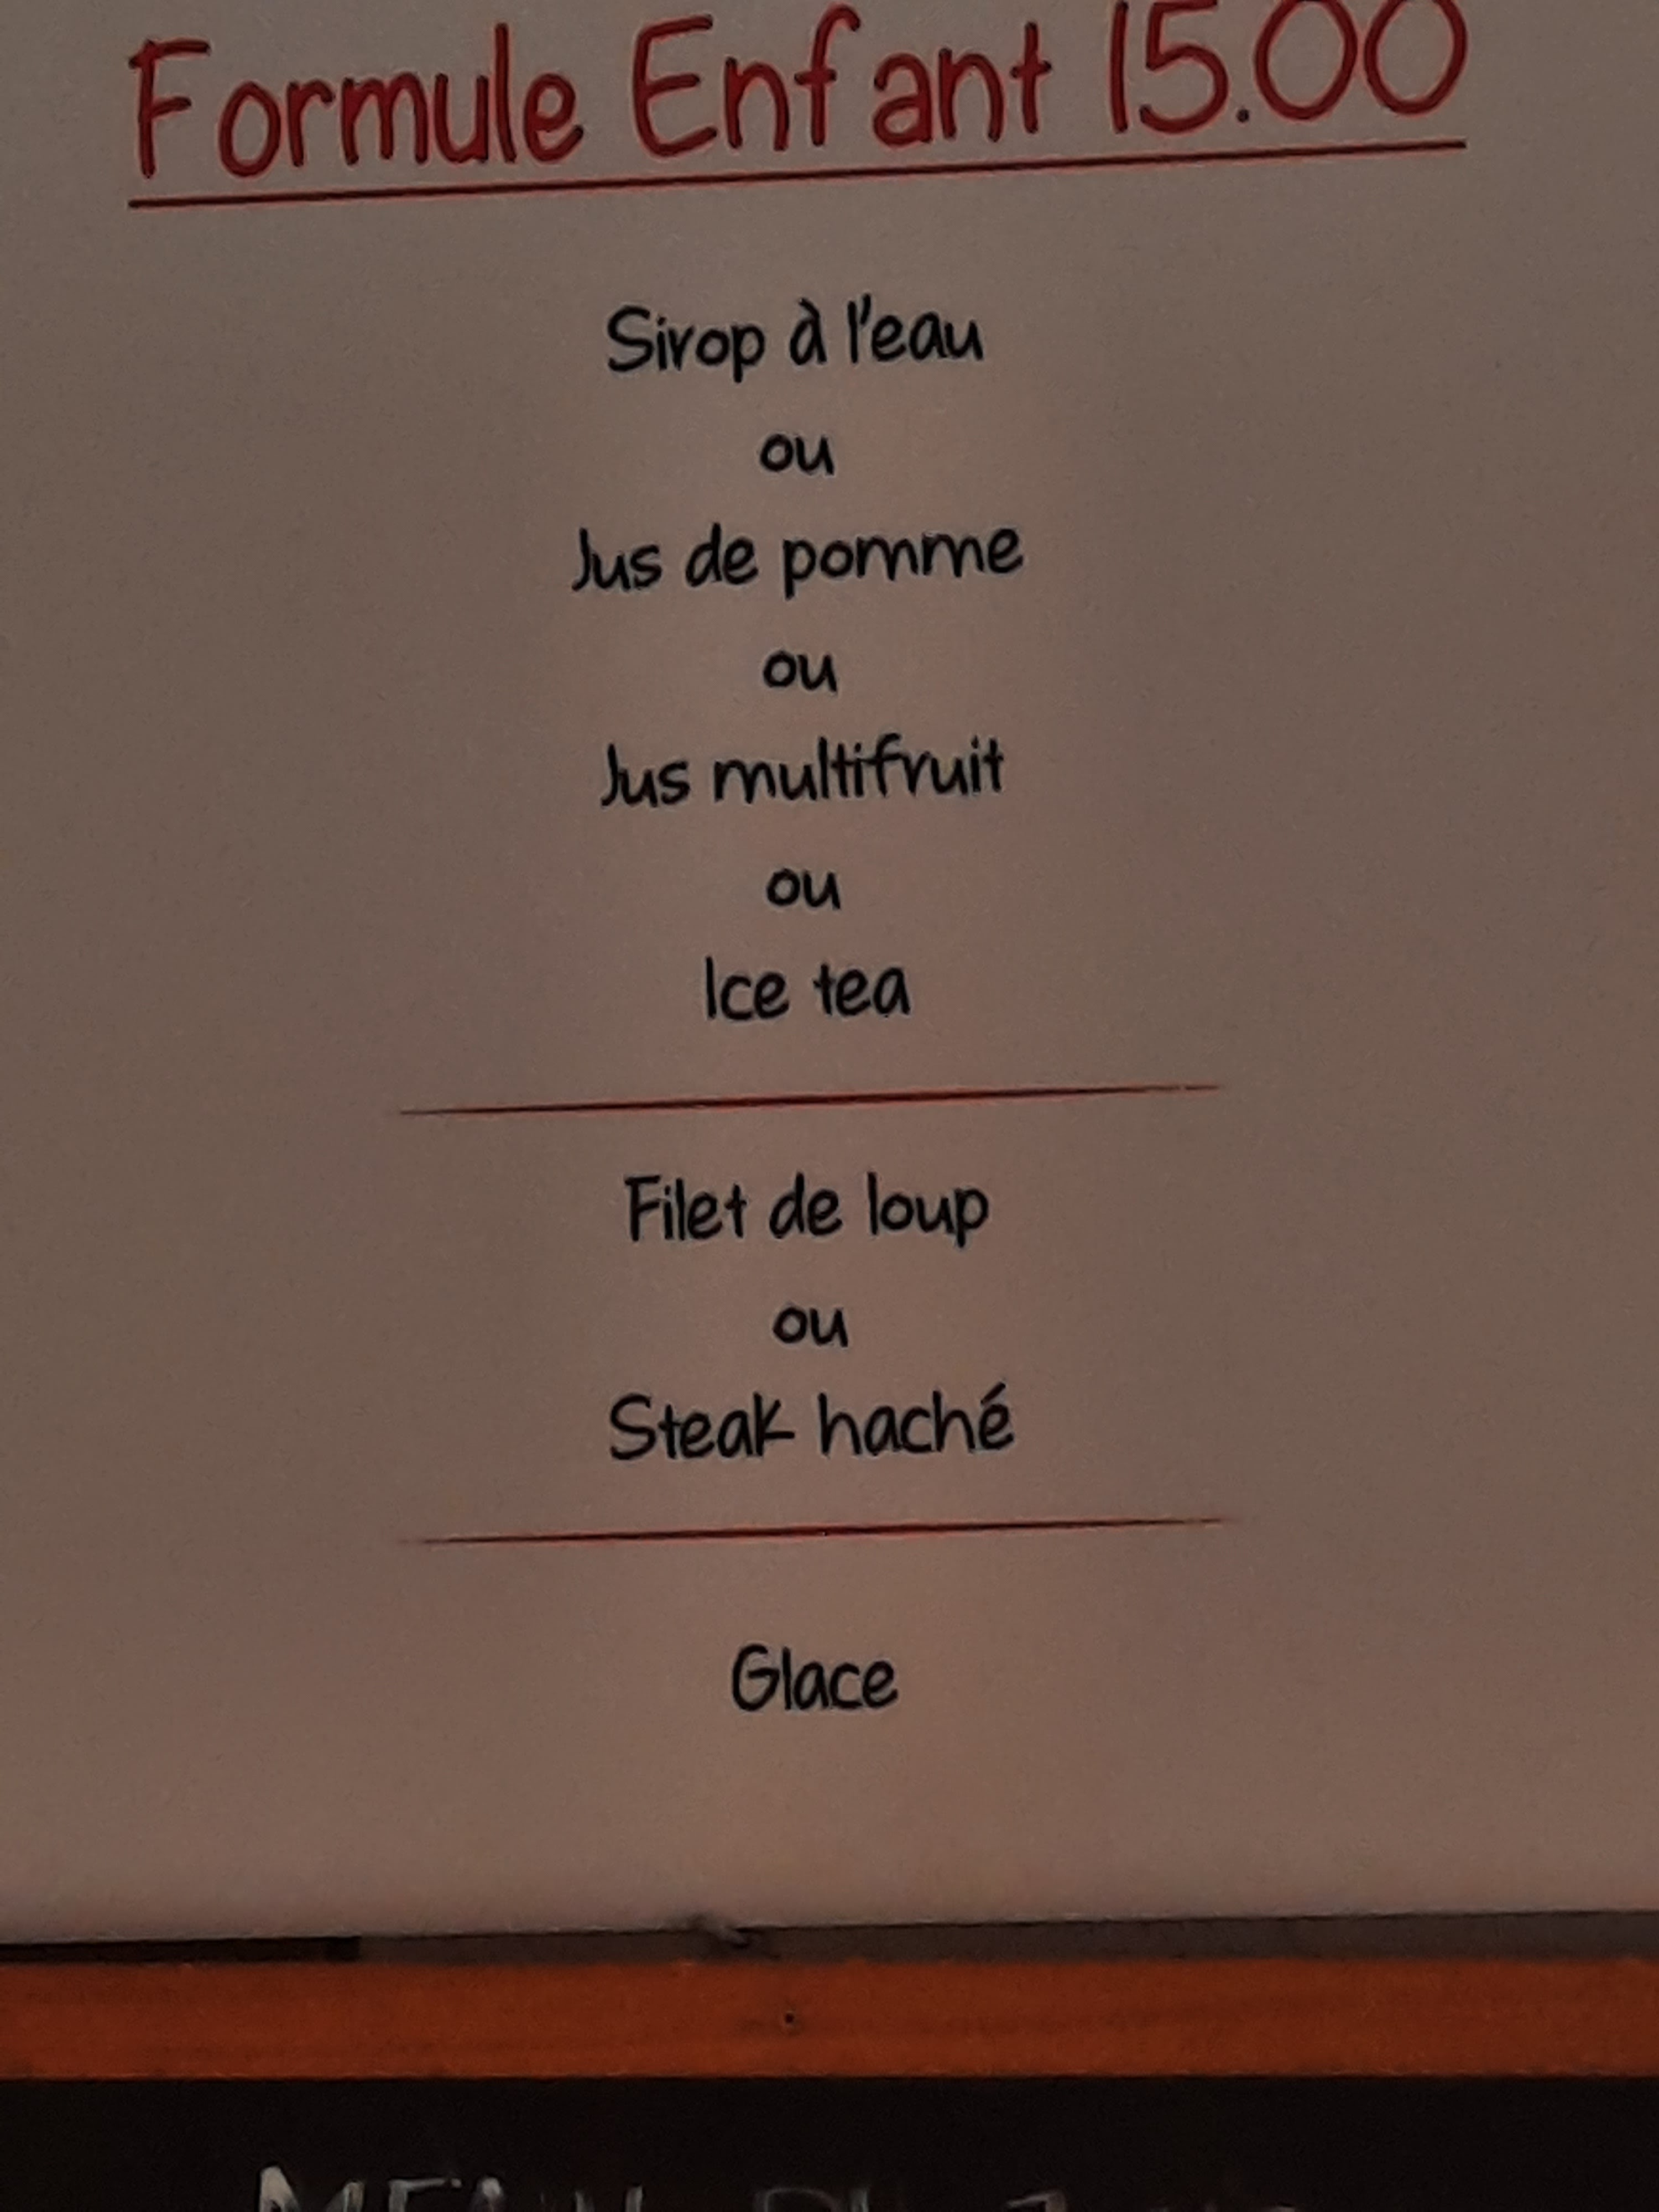 Formule Enfant 15.00
Sirop à l'eau
ou
Jus de pomme
ou
Jus multifruit
ou
Ice tea
Filet de loup
ou
Steak haché
Glace
MENU